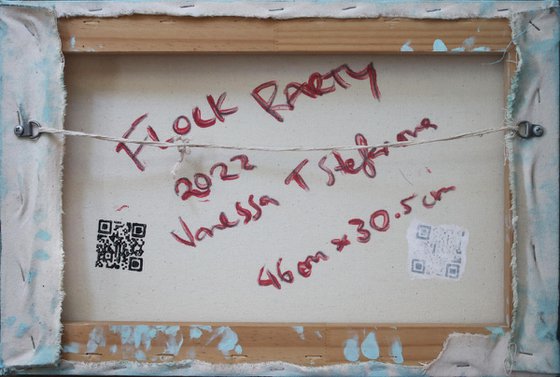 Flock Party
2022
Vanessa T Stefanova
46cm x 30.5cm